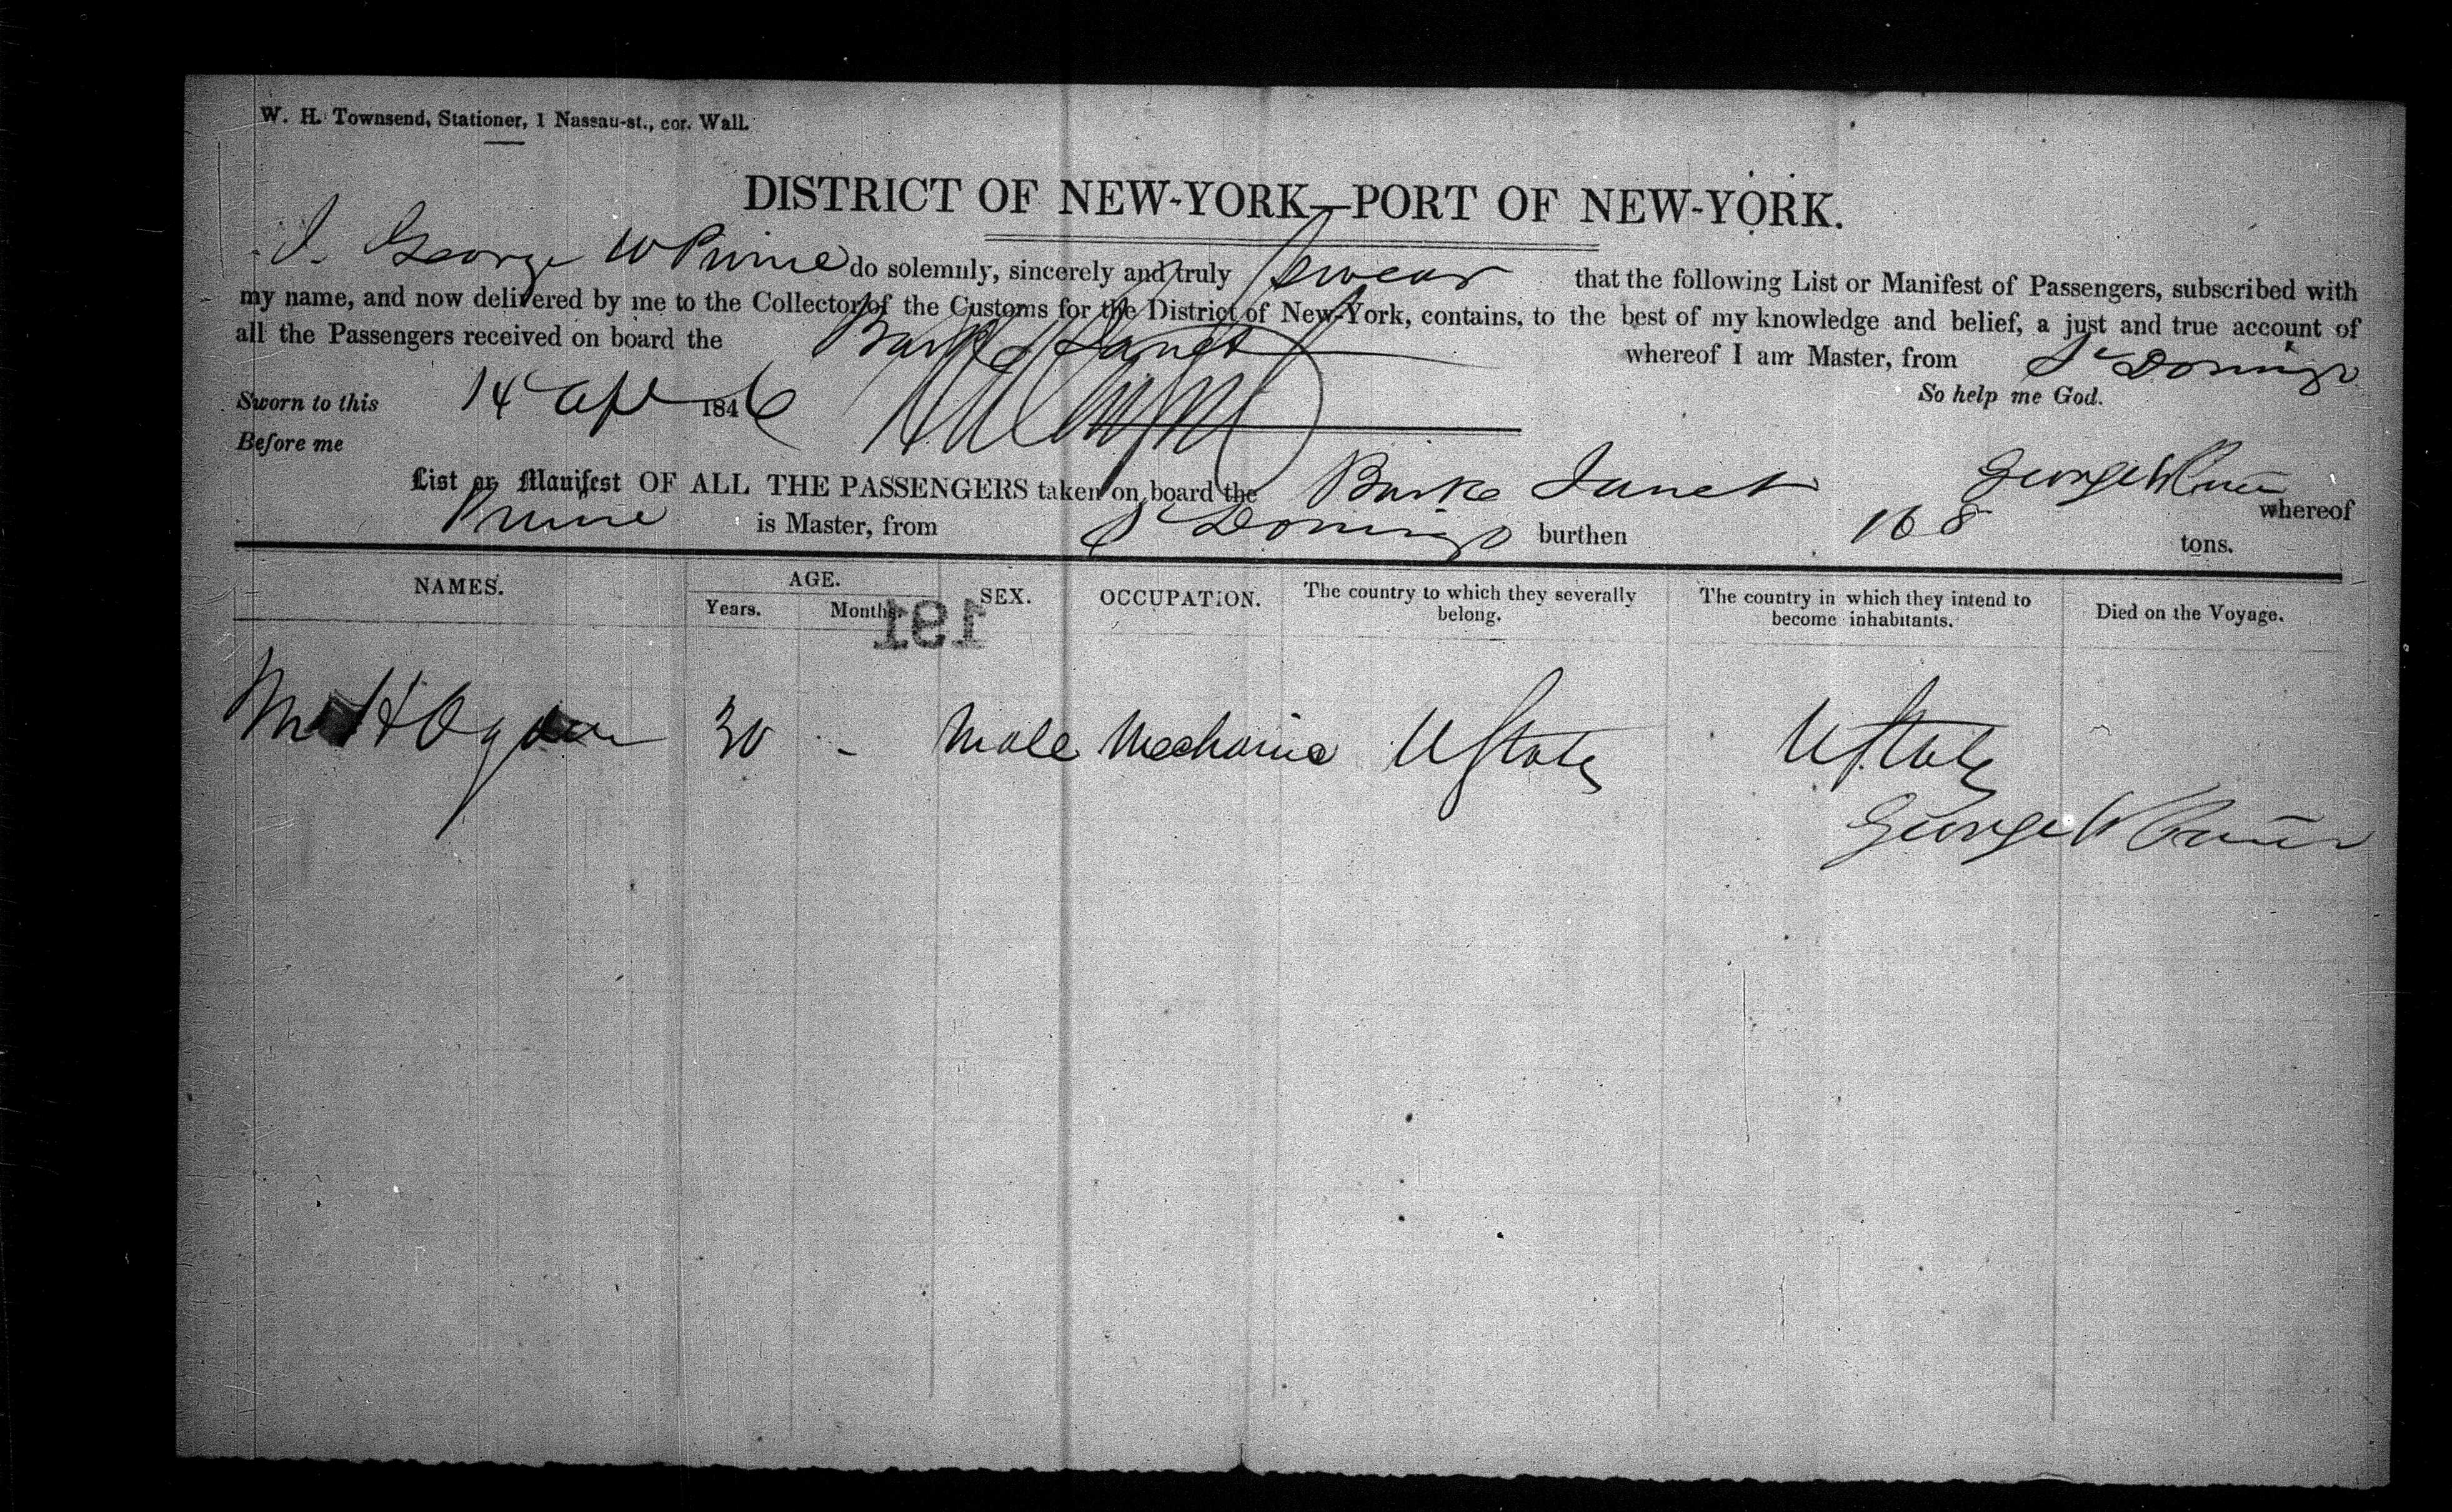 W. H. Townsend, Stationer, 1 Nassau-st., cor. Wall.
DISTRICT OF NEW-YORK—PORT OF NEW-YORK.
I George W Prime do solemnly, sincerely and truly swear that the following List or Manifest of Passengers, subscribed with
my name, and now delivered by me to the Collector of the Customs for the District of New-York, contains, to the best of my knowledge and belief, a just and true account of
all the Passengers received on board the Barke Janet whereof I am Master, from St Domingo
Sworn to this 14 Apl 1846 So help me God.
Before me
George W
List or Manifest OF ALL THE PASSENGERS taken on board the Barke Janet whereof
Prime is Master, from St Domingo burthen 168 tons.
NAMES. AGE. SEX. OCCUPATION. The country to which they severally belong. The country in which they intend to become inhabitants. Died on the Voyage.
Years. Months.
191
H Ogden 30 - Male Mechanic U States U States
George W